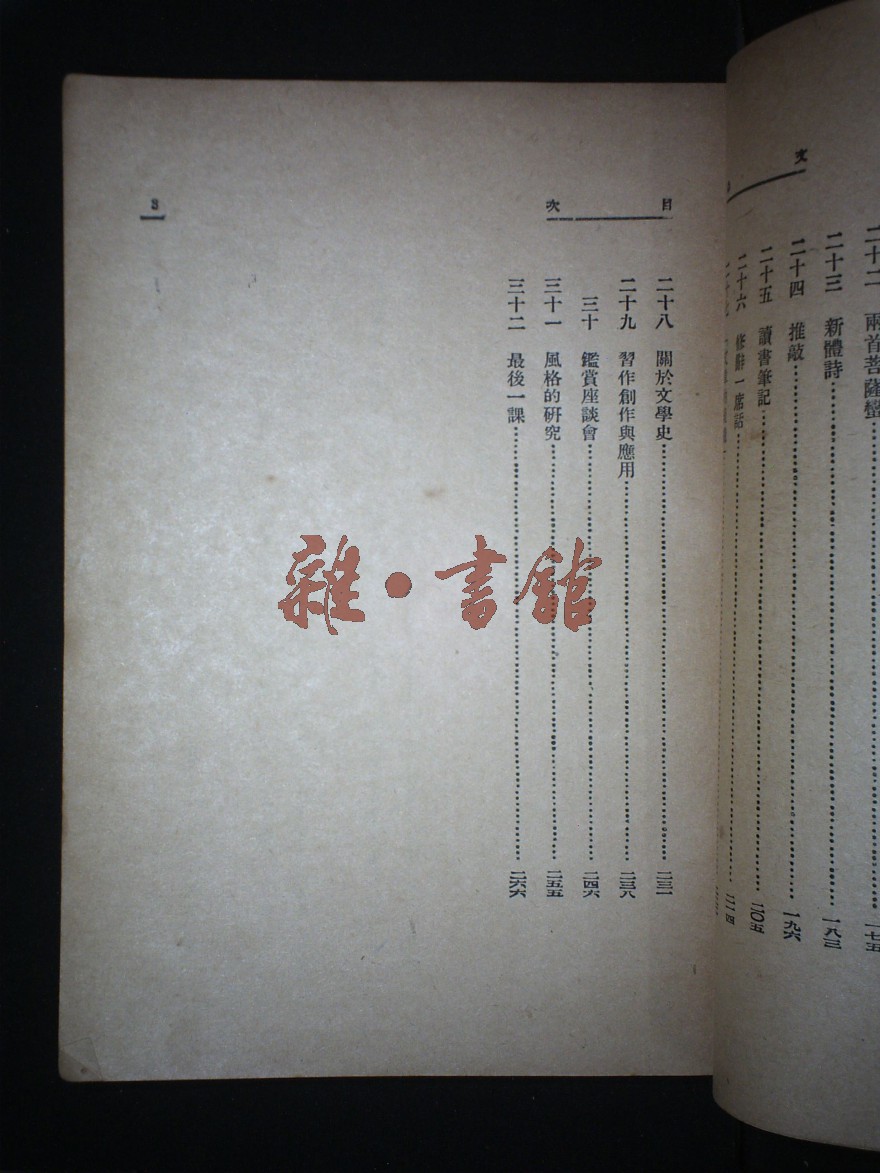 文
二十二 兩首菩薩蠻 一七五
二十三 新體詩 一八三
二十四 推敲 一九六
二十五 讀書筆記 二〇五
二十六 修辭一席話 二一四
目 次
二十八 關於文學史 二三一
二十九 習作創作與應用 二三八
三十 鑑賞座談會 二四六
三十一 風格的研究 二五五
三十二 最後一課 二六六
3
雜·書館